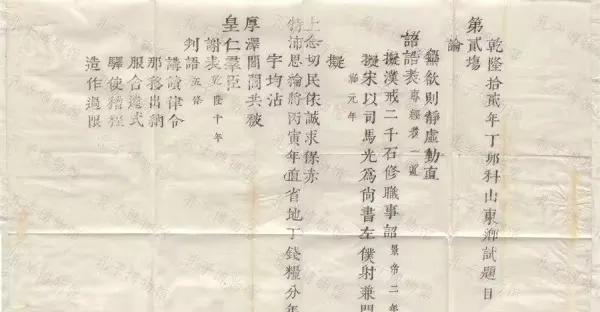 乾隆拾貳年丁卯科山東鄉試題目
第貳塲
論
無欲則靜虛動直
詔誥表專經者一道
擬漢戒二千石修職事詔景帝二年
擬宋以司馬光爲尙書左僕射兼門
元年
擬
上念切民依誠求保赤
特沛恩綸將丙寅年直省地丁錢糧分年
字均沾
厚澤閭閻共被
皇仁羣臣
謝表乾隆十年
判語五條
講讀律令
那移出納
服舍違式
驛使稽程
造作過限